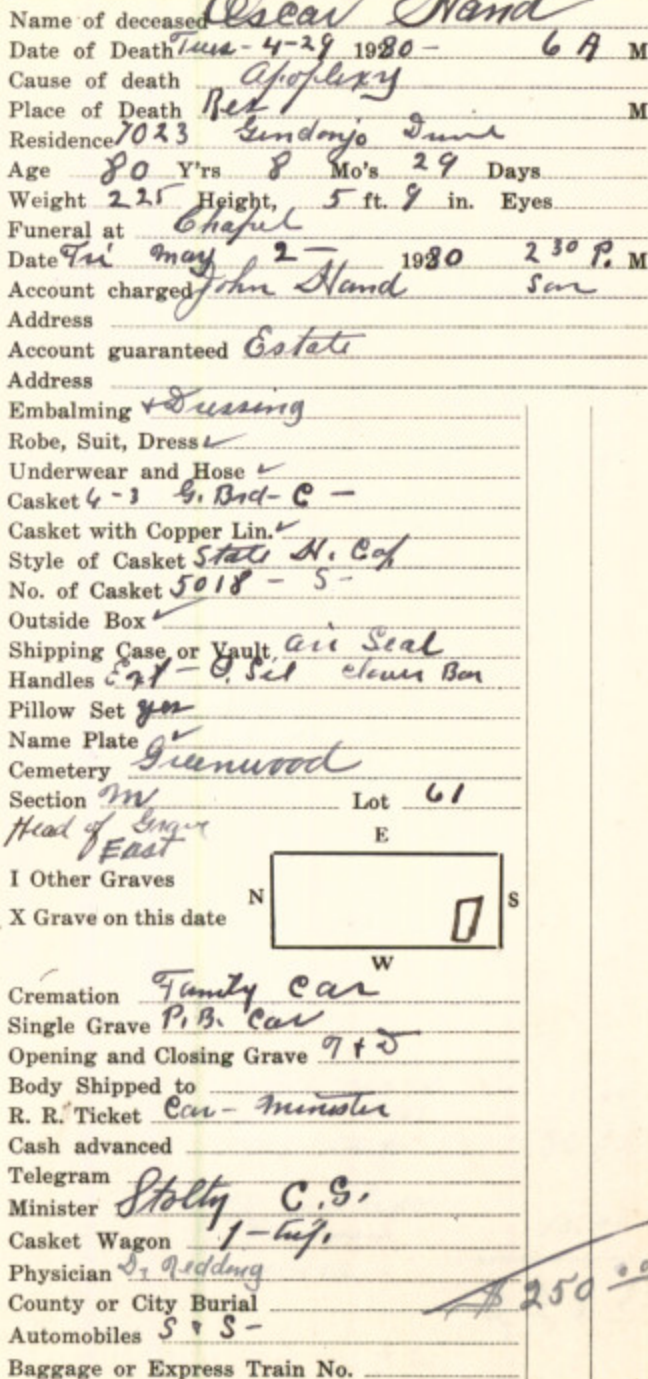 Name of deceased Oscar Hand
Date of Death Tues - 4-29 1930 - 6 A M
Cause of death Apoplexy
Place of Death Res M
Residence 7023
Age 80 Y'rs 8 Mo's 29 Days
Weight 225 Height, 5 ft. 9 in. Eyes
Funeral at Chapel
Date Fri May 2 - 1930 2 30 P. M
Account charged John Hand Son
Address
Account guaranteed Estate
Address
Embalming + Dressing
Robe, Suit, Dress ✓
Underwear and Hose ✓
Casket 6-3 G. Brd- C -
Casket with Copper Lin. ✓
Style of Casket State H. Cap
No. of Casket 5018 - S-
Outside Box ✓
Shipping Case or Vault Air Seal
Handles Ext - O. Sil Bar
Pillow Set yes
Name Plate ✓
Cemetery Greenwood
Section M Lot 61
Head of Grave
East
E
I Other Graves
N S
X Grave on this date
W
Cremation Family Car
Single Grave P.B. Car
Opening and Closing Grave T + D
Body Shipped to
R. R. Ticket Car - Minister
Cash advanced
Telegram
Minister Stolty C.S.
Casket Wagon 1-
Physician Dr Redding
County or City Burial $250.00
Automobiles S & S -
Baggage or Express Train No.